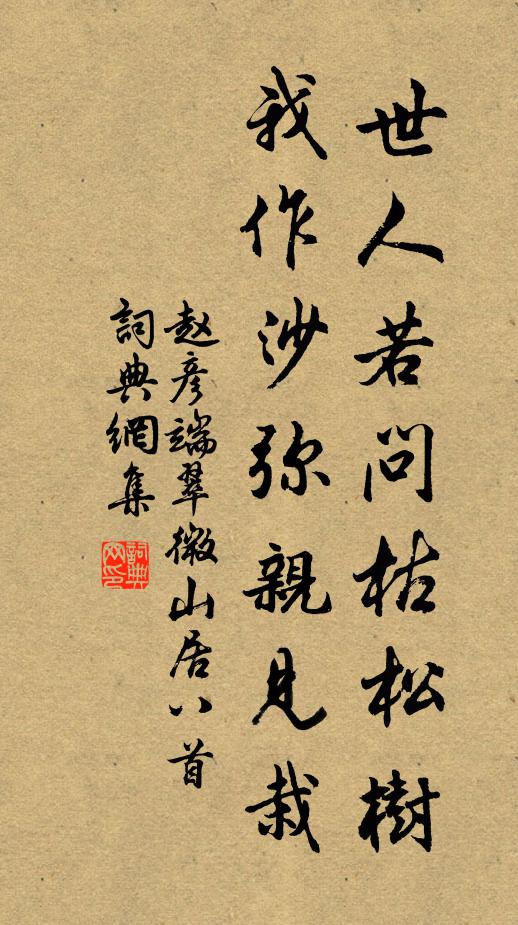 世人若問枯松樹
我作沙弥親見栽
赵彦端翠微山居八首
詞典網集
詞典網印